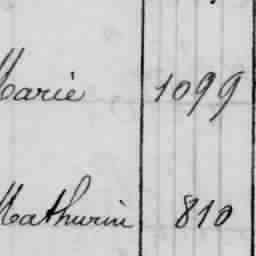 Marie 1099
Mathurin 810